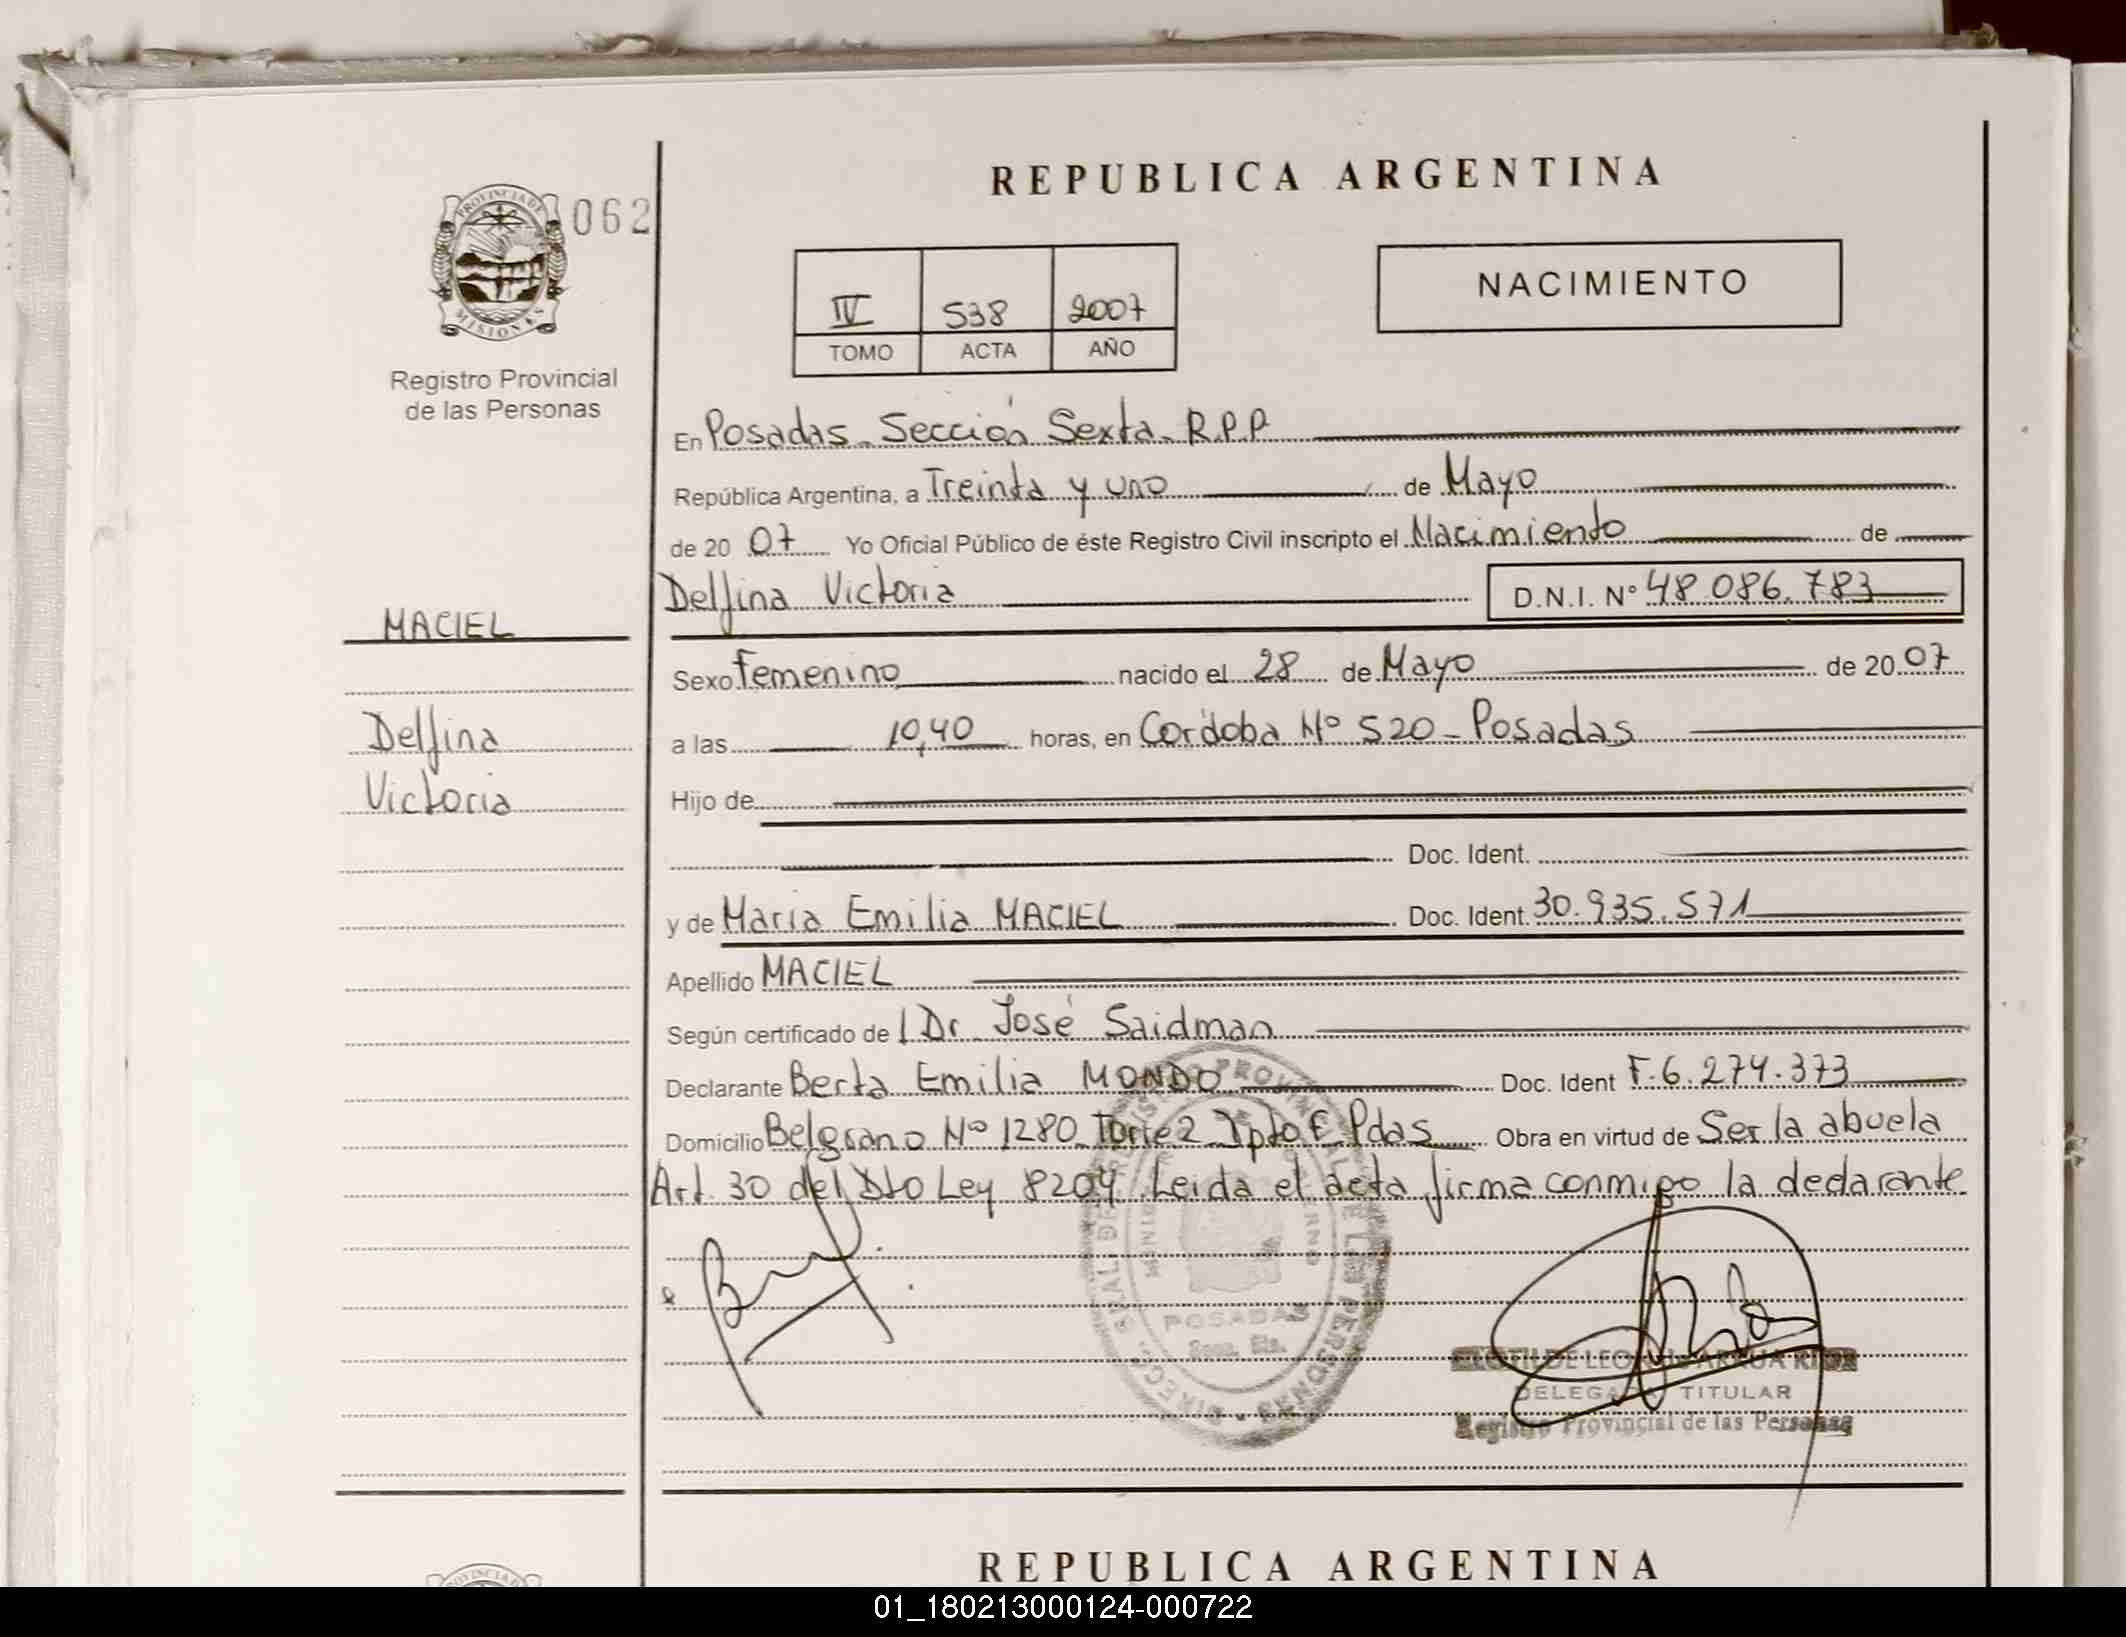 REPUBLICA ARGENTINA
PROVINCIA DE
MISIONES
062
Registro Provincial
de las Personas
IV 538 2007
TOMO ACTA AÑO
NACIMIENTO
En Posadas. Sección Sexta. R.P.P.
República Argentina, a Treinta y uno de Mayo
de 20 07 Yo Oficial Público de éste Registro Civil inscripto el Nacimiento de
Delfina Victoria D.N.I. Nº 48.086.783
MACIEL
Delfina
Victoria
Sexo Femenino nacido el 28 de Mayo de 20 07
a las 10,40 horas, en Córdoba Nº 520 - Posadas
Hijo de
Doc. Ident.
y de Maria Emilia MACIEL Doc. Ident. 30.935.571
Apellido MACIEL
Según certificado de l Dr. José Saidman
Declarante Berta Emilia MONDO Doc. Ident F.6.274.373
Domicilio Belgrano Nº 1280 Torre 2 Dpto E Pdas Obra en virtud de Ser la abuela
Art. 30 del Dto Ley 8204. Leida el acta firma conmigo la declarante
POSADAS
Secc. 6ta.
DELEGADA TITULAR
Registro Provincial de las Personas
REPUBLICA ARGENTINA
01_180213000124-000722